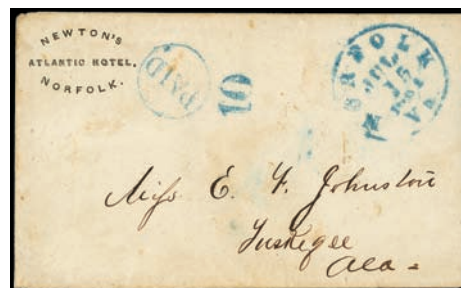 NEWTON'S
ATLANTIC HOTEL,
NORFOLK.
PAID
10
NORFOLK
JUL
15
1861
VA
Miss E. F. Johnston
Tuskegee
Ala